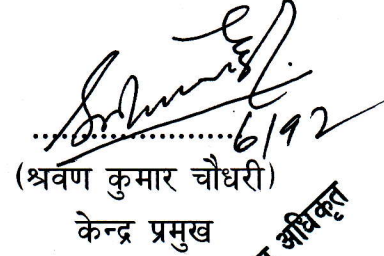 6/12
(श्रवण कुमार चौधरी)
केन्द्र प्रमुख
अधिकृत